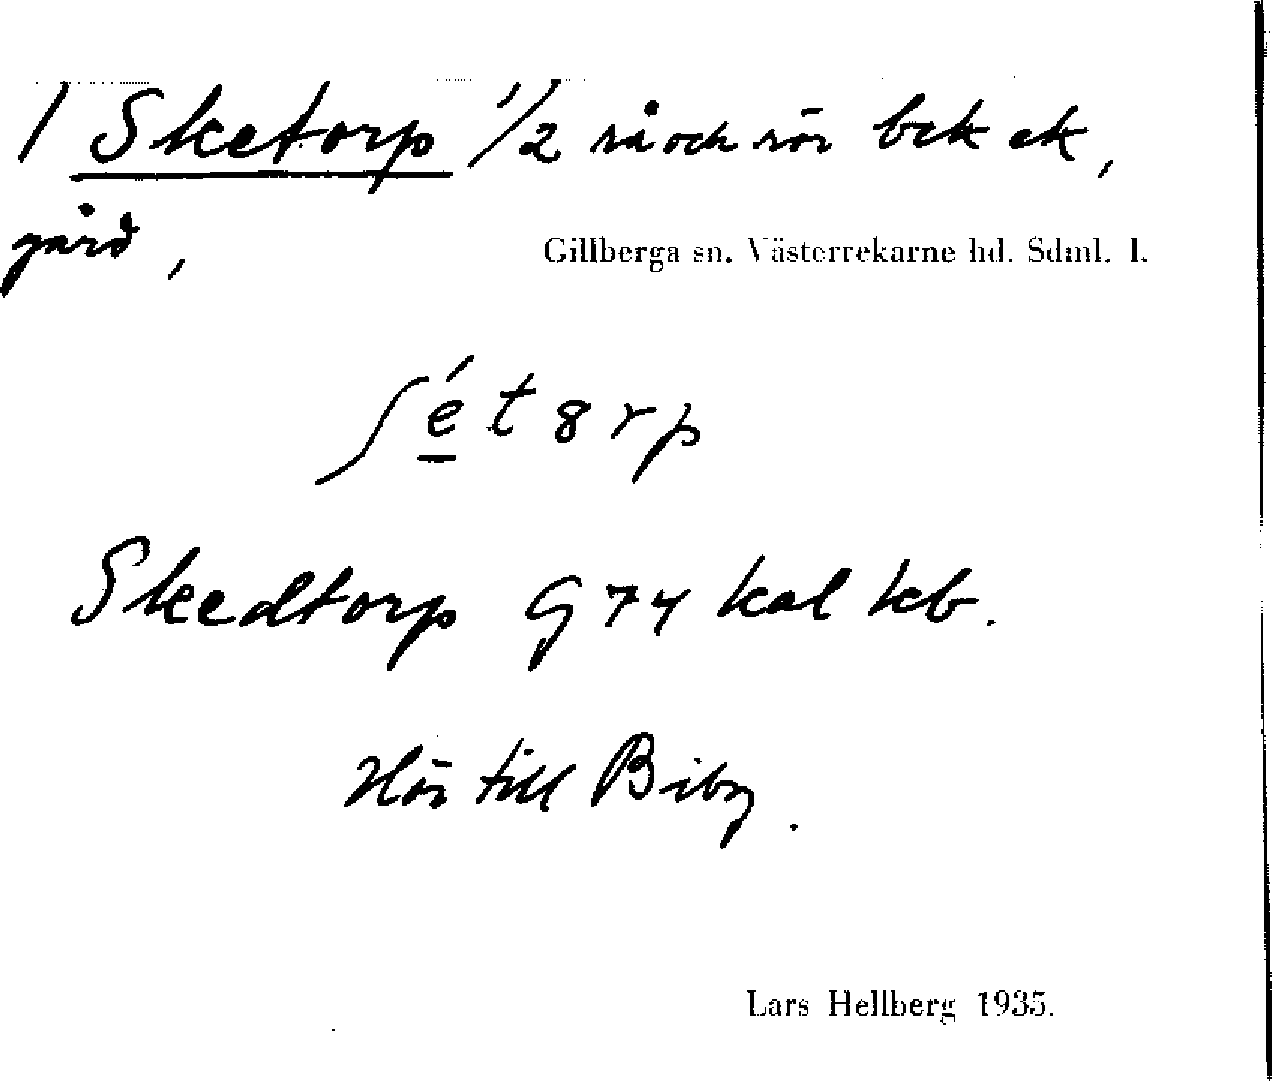 / Sketorp 1/2 rå och rör bek ek,
gård,
Gillberga sn. Västerrekarne hd. Sdml. I.
ʃét8rp
Skedtorp G 74 kal kb.
Hör till Biby.
Lars Hellberg 1935.